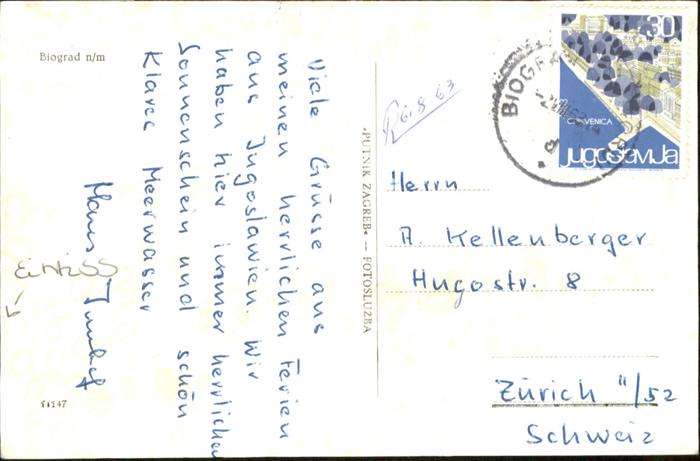 Biograd n/m
Viele Grüsse aus
meinen herrlichen Ferien
aus Jugoslawien. Wir
haben hier immer herrlichen
Sonnenschein und schön
Klares Meerwasser
Hans Imhof
54147
»PUTNIK ZAGREB« — FOTOSLUŽBA
6.8.63
BIOGRAD
30
CRIKVENICA
jugoslavija
Herrn
A. Kellenberger
Hugostr. 8
Zürich 11/52
Schweiz